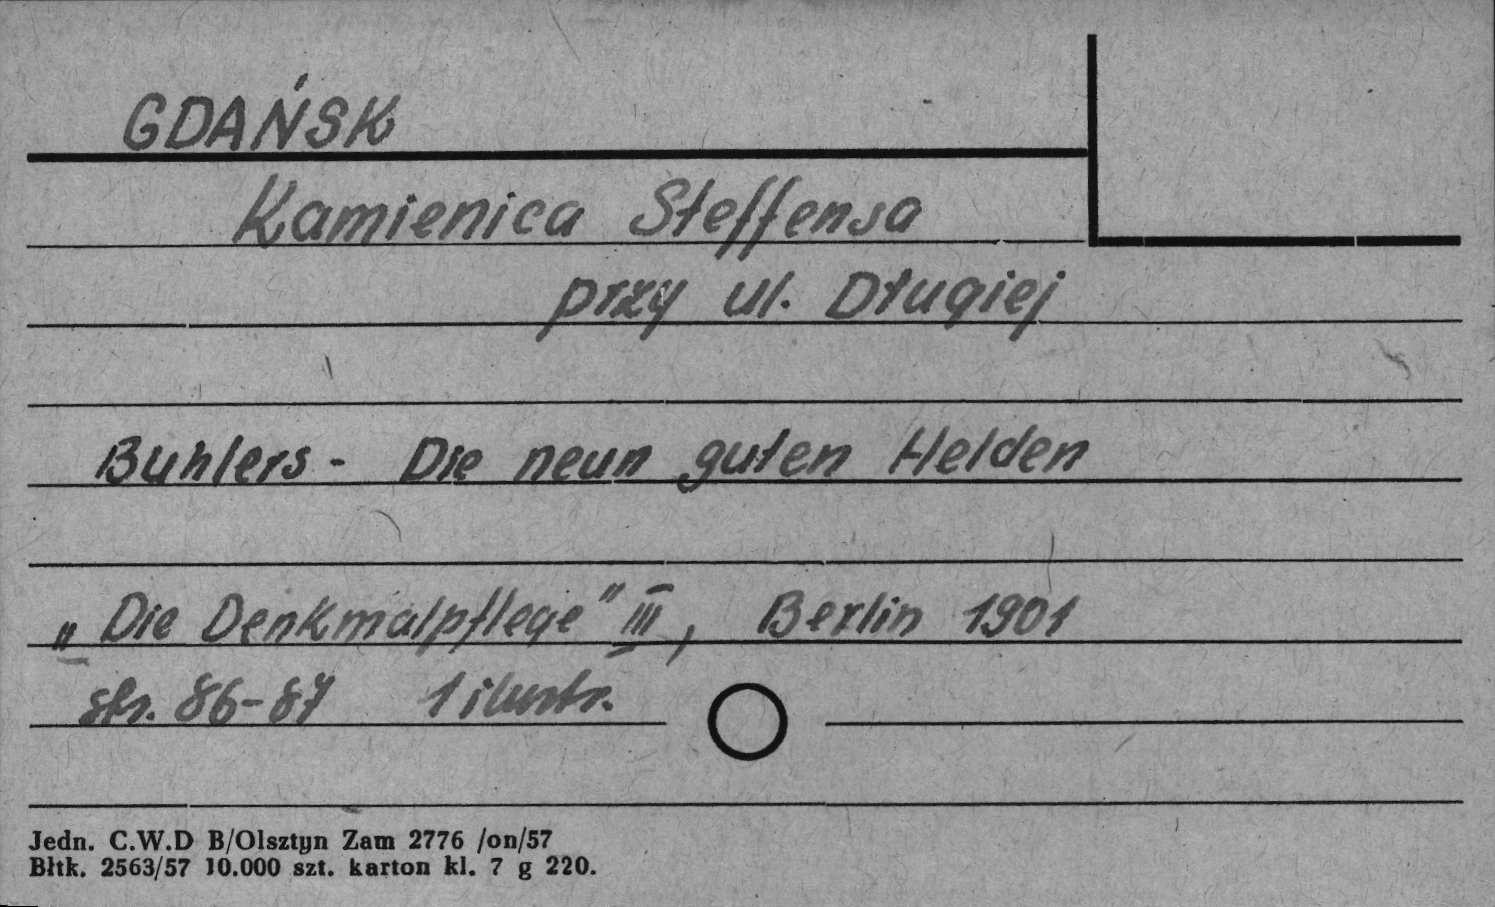 GDAŃSK
Kamienica Steffensa
przy ul. Długiej
Buhlers - Die neun guten Helden
„Die Denkmalpflege" III, Berlin 1901
str. 86-87 1 ilustr.
Jedn. C.W.D B/Olsztyn Zam 2776 /on/57
Błtk. 2563/57 10.000 szt. karton kl. 7 g 220.